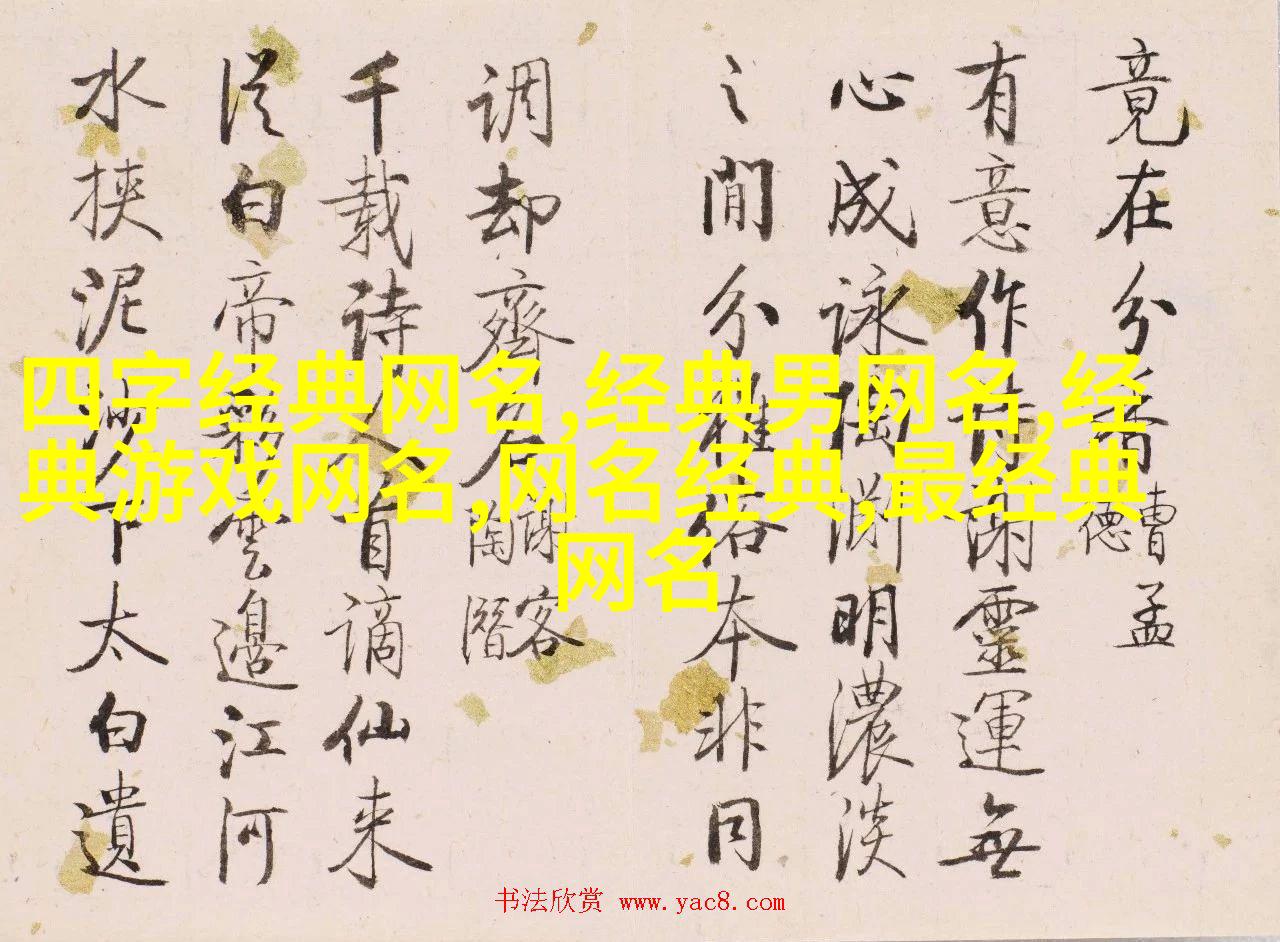 四字经典网名,经典男网名,经
典游戏网名,网名经典,最经典
网名
竟在分香曹孟德
有意作诗谢靈運無
心成詠陶渊明濃淡
之間分雅俗本非同
调却齊名客陶潛
千载诗人首谪仙来
從白帝雲邊江河
水挟泥沙下太白遺
书法欣赏 www.yac8.com